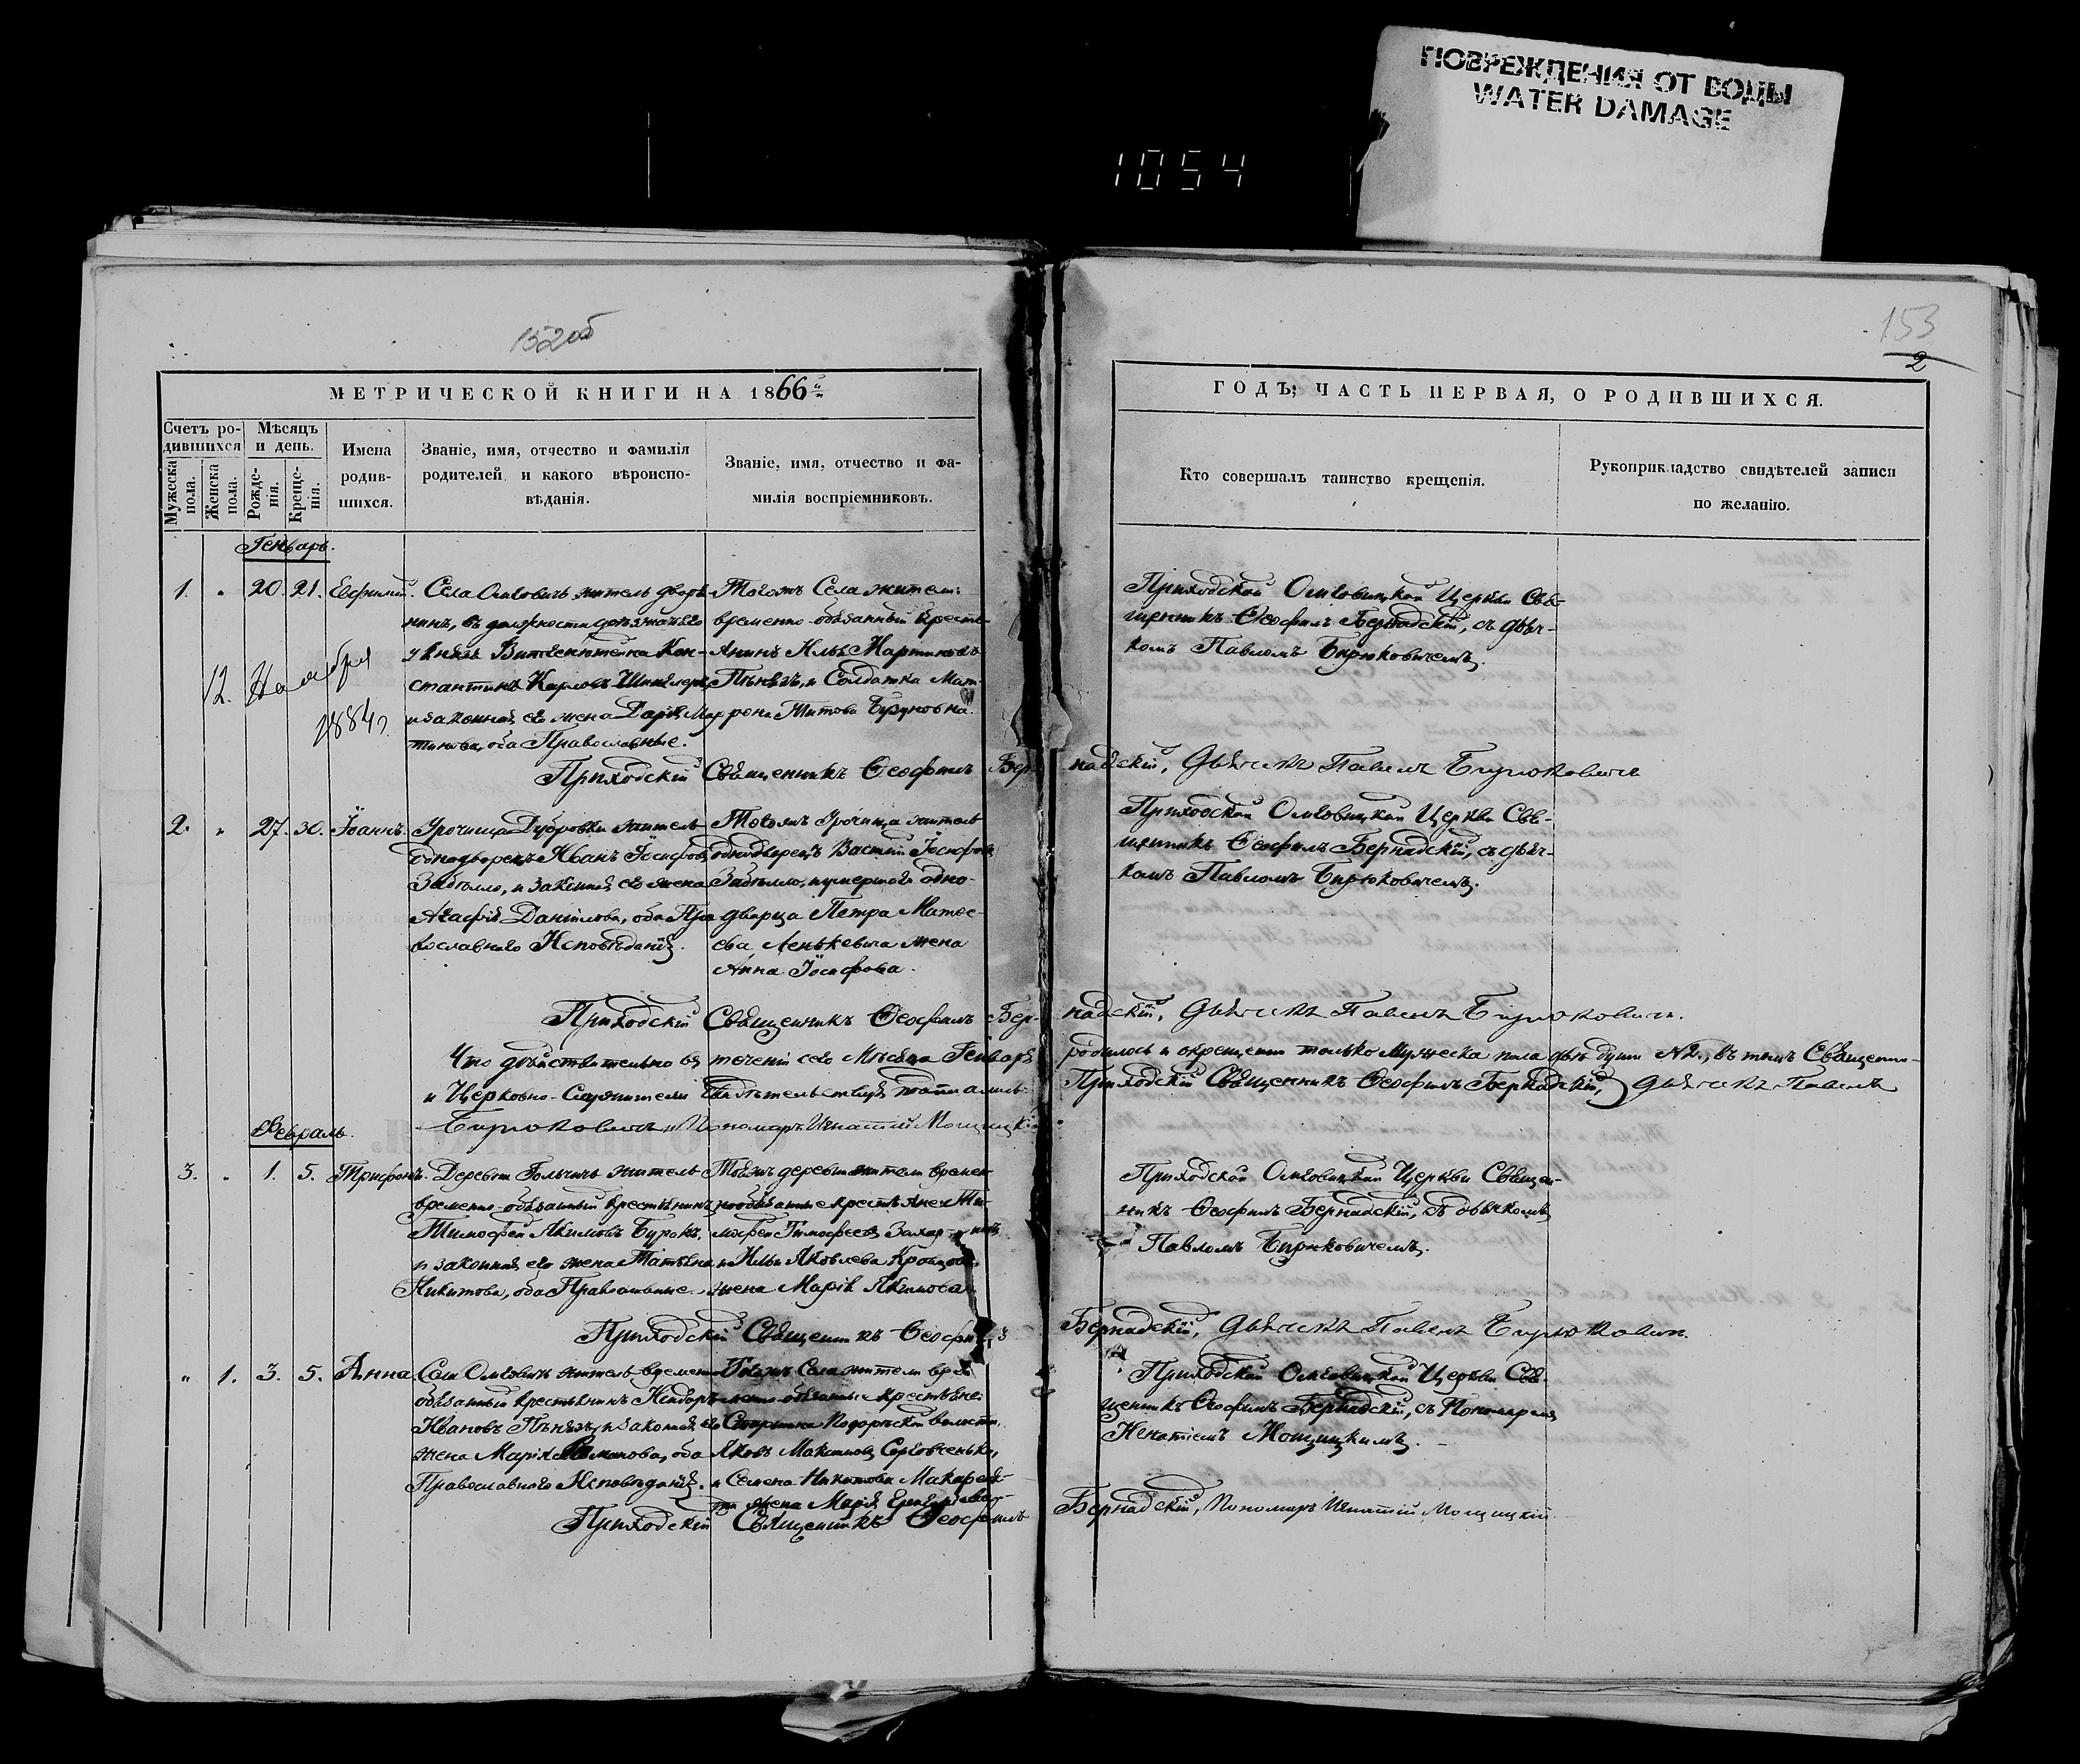 ПОВРЕЖДЕНИЯ ОТ ВОДЫ
WATER DAMAGE
1054
152об
153
2
МЕТРИЧЕСКОЙ КНИГИ НА 1866й
ГОДЪ; ЧАСТЬ ПЕРВАЯ, О РОДИВШИХСЯ.
Счетъ ро-
дившихся
Мужеска пола.
Женска пола.
Мѣсяцъ
и день.
Рожде-
нія.
Креще-
нія.
Имена
родив-
шихся.
Званіе, имя, отчество и фамилія
родителей и какого вѣроиспо-
вѣданія.
Званіе, имя, отчество и фа-
милія воспріемниковъ.
Кто совершалъ таинство крещенія.
Рукоприкладство свидѣтелей записи
по желанію.
Генварь.
1. " 20. 21. Евфимій.
Села Омговичъ житель дворя-
нинъ, въ должности
у Князя Витгенштейна Кон-
стантинъ Карловъ
и законная его жена Дарія Мар-
тинова, оба Православные.
Тогожъ Села жители:
временно-обязанный крестья-
анинъ Илья Мартиновъ
и Солдатка Мат-
рона Титова
Приходской Омговицкой Церкви Свя-
щенникъ Ѳеофилъ Бернадскій, съ дьяч-
комъ Павломъ Бирюковичемъ.
12. Ноября
1884 г.
Приходскій Священникъ Ѳеофилъ Бернадскій, Дьячекъ Павелъ Бирюковичъ
2. " 27. 30. Іоаннъ.
Урочища Дубровки житель
однодворецъ Иванъ Іосифовъ
Забѣлло, и законная его жена
Агафія Даніилова, оба Пра-
вославнаго Исповѣданія.
Тогожъ Урочища житель
однодворецъ Василій Іосифовъ
Забѣлло, и умершаго одно-
дворца Петра Матѳе-
ева Ленькевича жена
Анна Іосифова.
Приходской Омговицкой Церкви Свя-
щенникъ Ѳеофилъ Бернадскій, съ дьяч-
комъ Павломъ Бирюковичемъ.
Приходскій Священникъ Ѳеофилъ Бернадскій, Дьячекъ Павелъ Бирюковичъ.
Что дѣйствительно въ теченіи сего Мѣсяца Генваря родилось и окрещено только Мужеска пола двѣ души №2., въ томъ Священно-
и Церковно-Служители Приходскій Священникъ Ѳеофилъ Бернадскій, Дьячекъ Павелъ
Бирюковичъ, и Пономарь Игнатій Мощицкій.
Февраль.
3. " 1. 5. Трифонъ.
Деревни житель
временно-обязанный крестьянинъ
Тимофей Якимовъ Бурокъ,
и законная его жена Татьяна
Никитова, оба Православные.
Тойжъ деревни жители времен-
нообязанные крестьяне: Ти-
мофей Тимофеевъ
и Ильи Яковлева
жена Марія Якимова.
Приходской Омговицкой Церкви Священ-
никъ Ѳеофилъ Бернадскій, съ дьячкомъ
Павломъ Бирюковичемъ.
Приходскій Священникъ Ѳеофилъ Бернадскій, Дьячекъ Павелъ Бирюковичъ.
" 1. 3. 5. Анна.
Села Омговичъ житель временно
обязанный крестьянинъ
Ивановъ и законная его
жена Марія Романова, оба
Православнаго Исповѣданія.
Тогожъ Села жители вре-
менно-обязанные крестьяне:
Старшина волости
Яковъ Максимовъ
и Семена Никитова
жена Марія
Приходской Омговицкой Церкви Свя-
щенникъ Ѳеофилъ Бернадскій, съ Пономаремъ
Игнатіемъ Мощицкимъ.
Приходскій Священникъ Ѳеофилъ Бернадскій, Пономарь Игнатій Мощицкій.